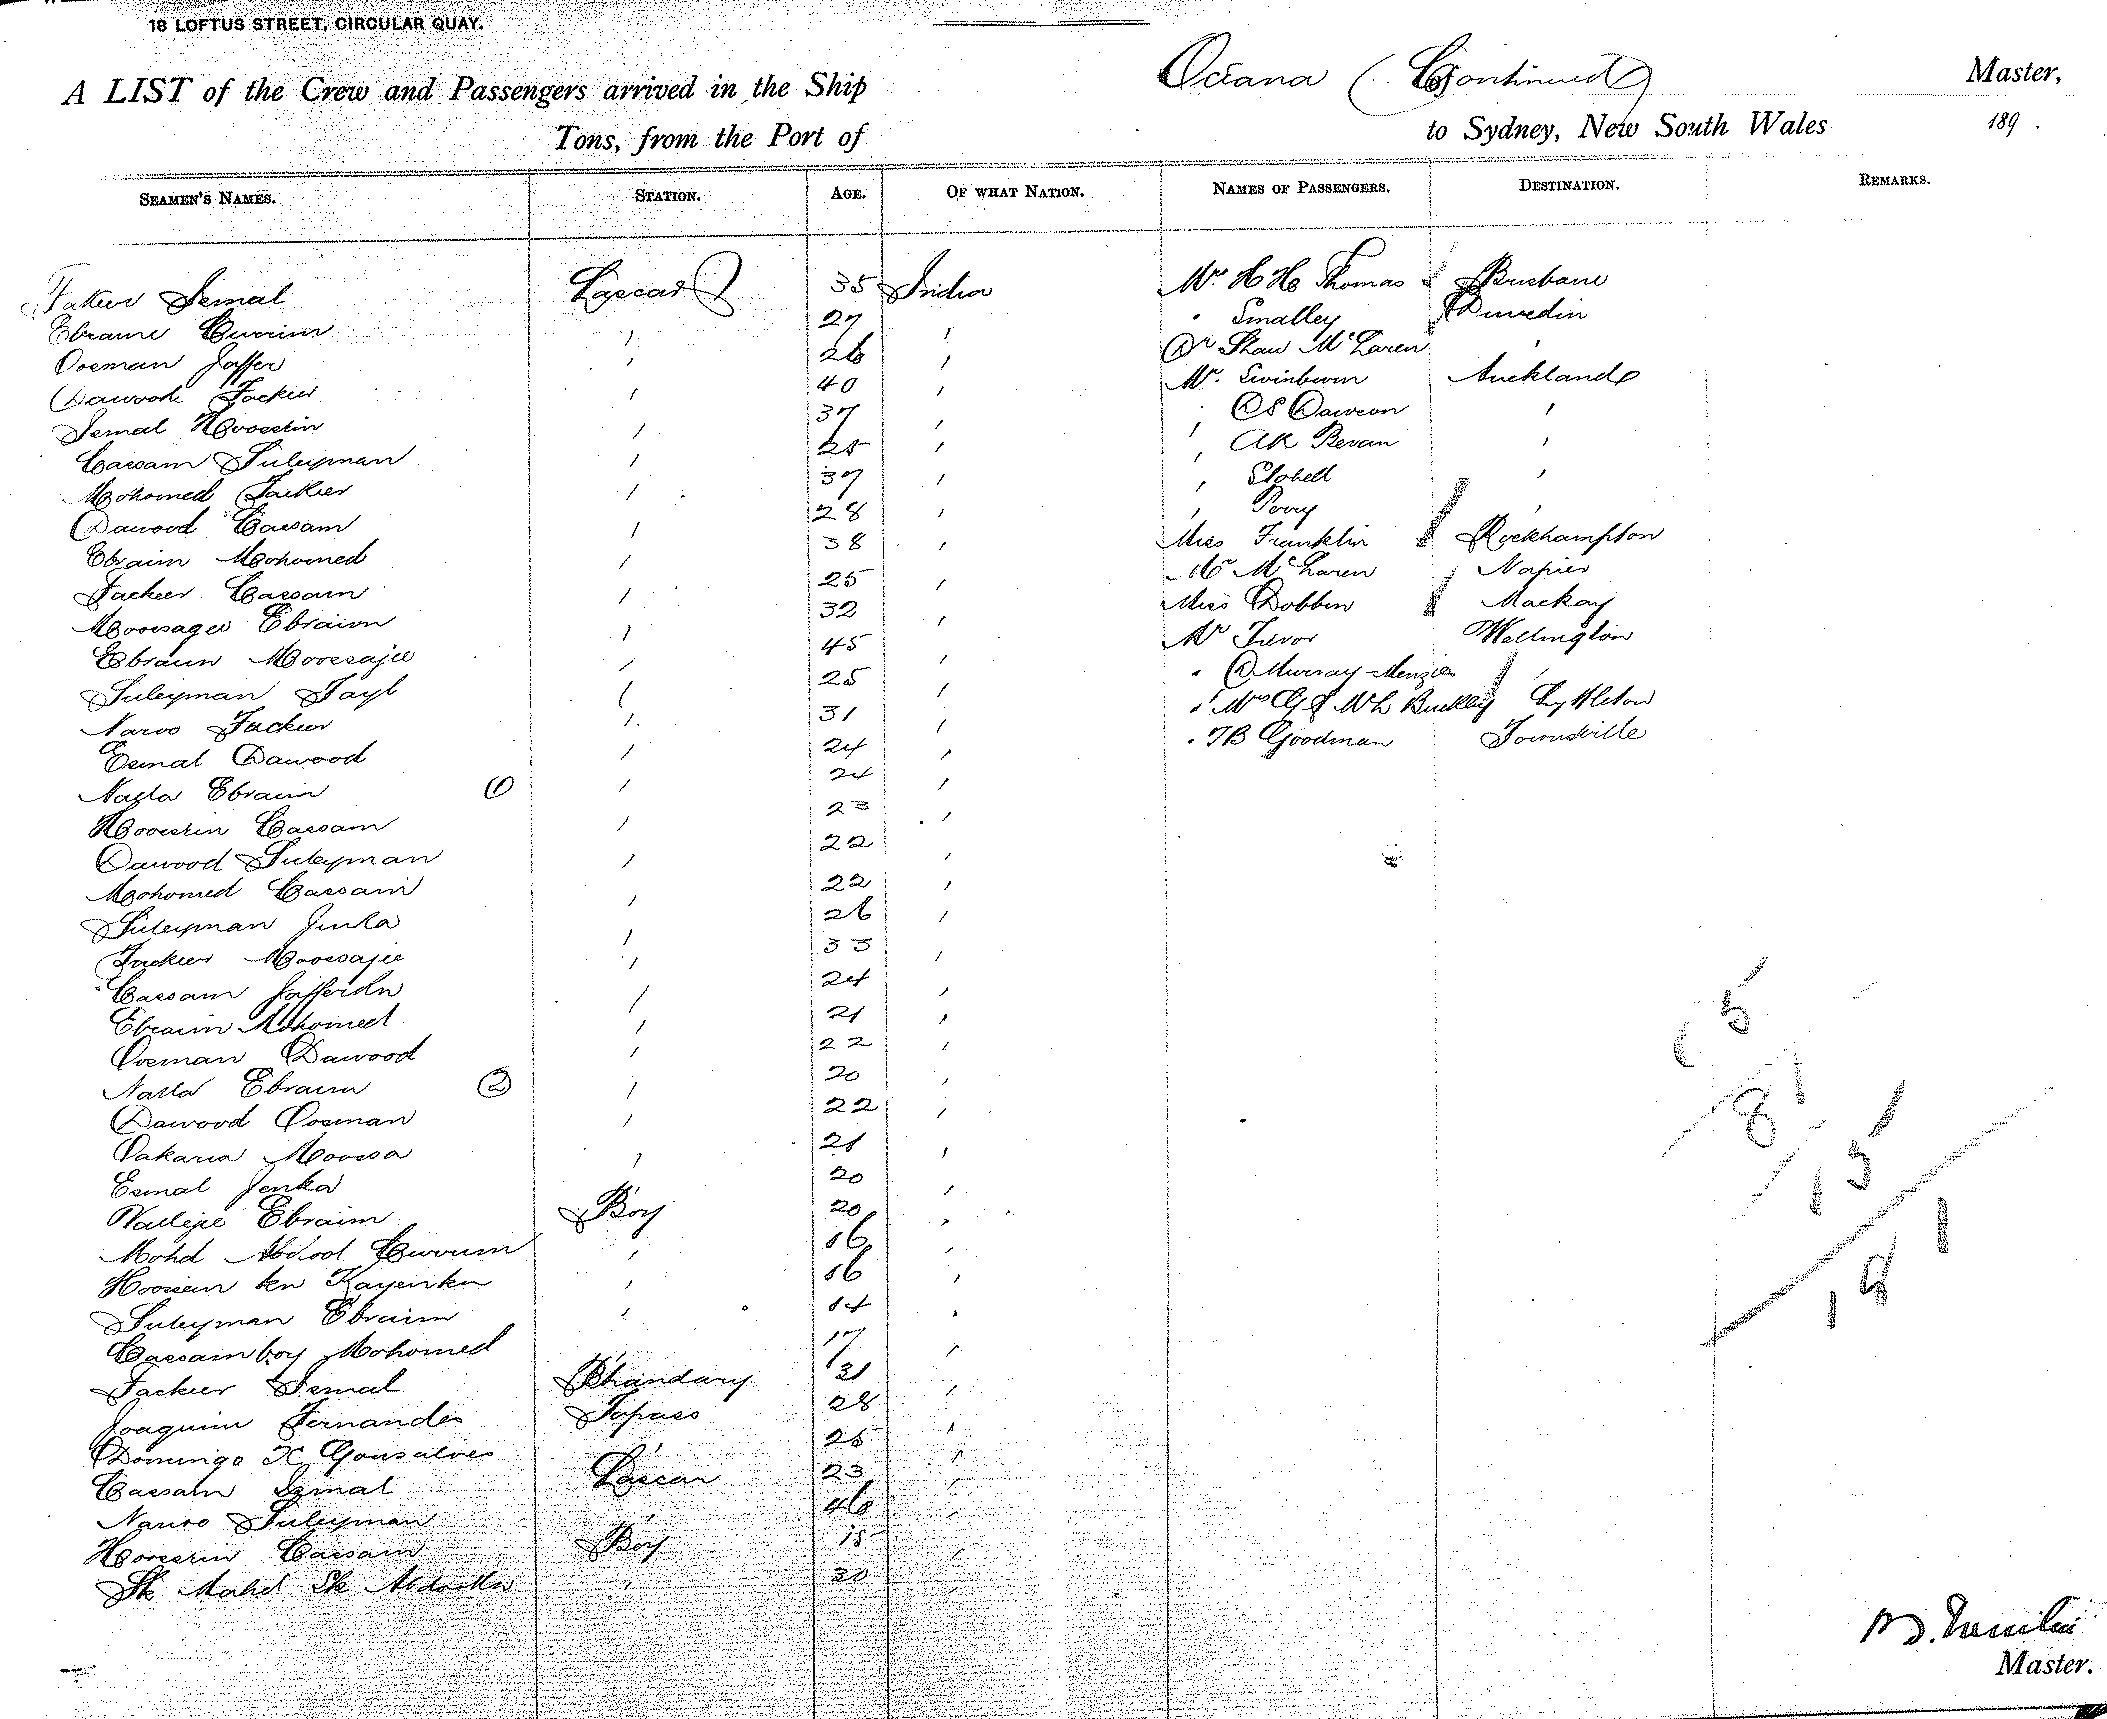 18 LOFTUS STREET, CIRCULAR QUAY.
A LIST of the Crew and Passengers arrived in the Ship Oceana (Continued) Master,
Tons, from the Port of to Sydney, New South Wales 189 .
SEAMEN'S NAMES. STATION. AGE. OF WHAT NATION. NAMES OF PASSENGERS. DESTINATION. REMARKS.
Fakeer Ismal Lascar 35 India Mr H H Thomas Brisbane
Ebraim Currim " 27 " " Smalley Dunedin
Oosman Jaffer " 26 " Dr Shaw McLaren "
Dawood Fackeer " 40 " Mr. Swinburn Auckland
Ismal Hoosein " 37 " " Dawson "
Cassam Suleyman " 25 " " AK Bevan "
Mohomed Fackeer " 37 " " "
Dawood Cassam " 28 " " Perry "
Ebraim Mohomed " 38 " Miss Franklin Rockhampton
Fackeer Cassam " 25 " Mr McLaren Napier
Moosagee Ebraim " 32 " Miss Dobbin Mackay
Ebraim Moosajee " 45 " Mr Trevor Wellington
Suleyman Tayb " 25 " " Murray-Menzies "
Naroo Fackeer " 31 " " Mrs G & W L Buckley Lyttleton
Esmal Dawood " 24 " " TB Goodman Townsville
Nalla Ebraim (1) " 24 "
Hoosein Cassam " 23 "
Dawood Suleyman " 22 "
Mohomed Cassam " 22 "
Suleyman " 26 "
Fackeer Moosajee " 33 "
Cassam " 24 "
Ebraim Mohomed " 21 "
Oosman Dawood " 22 "
Nalla Ebraim (2) " 20 "
Dawood Oosman " 22 "
Moosa " 21 "
Esmal Jenka " 20 "
Ebraim Boy 20 "
Mohd Abdool Currum " 16 "
Hoosein " 16 "
Suleyman Ebraim " 14 "
Cassamboy Mohomed " 17 "
Fackeer Ismal Bhandary 31 "
Joaquim Fernandes Topass 28 "
Domingo X Gonsalves " 25 "
Cassam Ismal Lascar 23 "
Naroo Suleyman " 46 "
Hoosein Cassam Boy 15 "
Sk Mahd Sk " 30 "
15
8
15
18
1
Master.